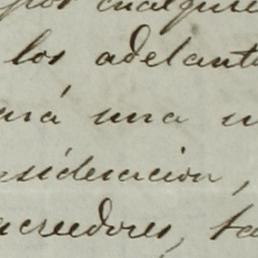 por cualquie
los adelant
ará una
sideracion,
acreedores, ta